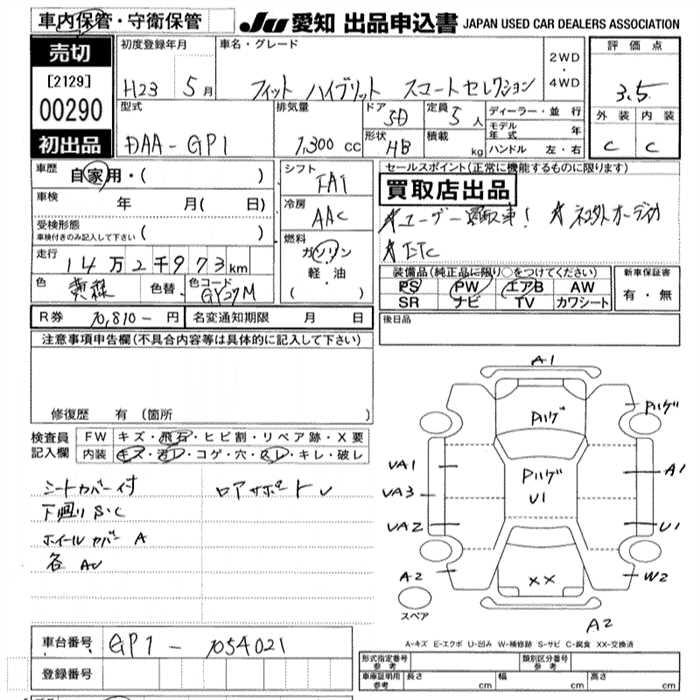 車内保管・守衛保管
JU 愛知 出品申込書 JAPAN USED CAR DEALERS ASSOCIATION
売切
[2129]
00290
初出品
初度登録年月
H23 5月
車名・グレード
フィット ハイブリット スマートセレクション
2WD
・
4WD
評価点
3.5
外装 内装
C C
型式
DAA-GP1
排気量
1,300 CC
ドア
5D
定員
5人
形状
HB
積載
kg
ディーラー・並行
モデル年式 年
ハンドル 左・右
車歴
自家用・( )
車検 年 月( 日)
受検形態
車検付きのみ記入して下さい ( )
走行
14万2千973km
色
色替
色コード
GY27M
シフト
FAT
冷房
AAC
燃料
ガソリン
軽油
・
( )
セールスポイント(正常に機能するものに限ります)
買取店出品
★ユーザー買取車! ★ネコ外オーディオ
★ETC
装備品(純正品に限り○をつけてください)
PS PW エアB AW
SR ナビ TV カワシート
新車保証書
有・無
後日品
R券 10,810-円 名変通知期限 月 日
注意事項申告欄(不具合内容等は具体的に記入して下さい)
修復歴 有(箇所 )
検査員記入欄
FW キズ・飛石・ヒビ割・リペア跡・X要
内装 キズ・汚レ・コゲ・穴・スレ・キレ・破レ
シートカバー付 ロアサポートレ
下廻りS・C
ホイールカバーA
各AU
A1
Pハゲ
Pハゲ
UA1
Pハゲ
U1
A1
UA3
UA2
U1
A2
XX
W2
スペア
A2
A-キズ E-エクボ U-凹み W-補修跡 S-サビ C-腐食 XX-交換済
車台番号 GP1-1054021
登録番号
形式指定番号
参考
類別区分番号
参考
車庫証明用
参考
長さ cm 幅 cm 高さ cm